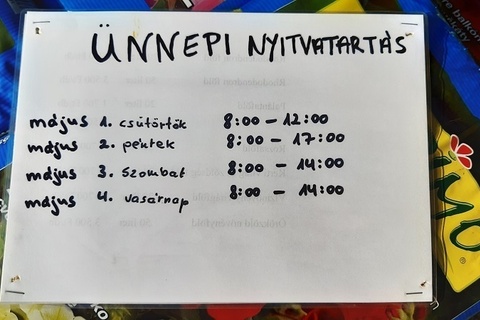 ÜNNEPI NYITVATARTÁS
május 1. csütörtök 8:00 – 12:00
május 2. péntek 8:00 – 17:00
május 3. szombat 8:00 – 14:00
május 4. vasárnap 8:00 – 14:00